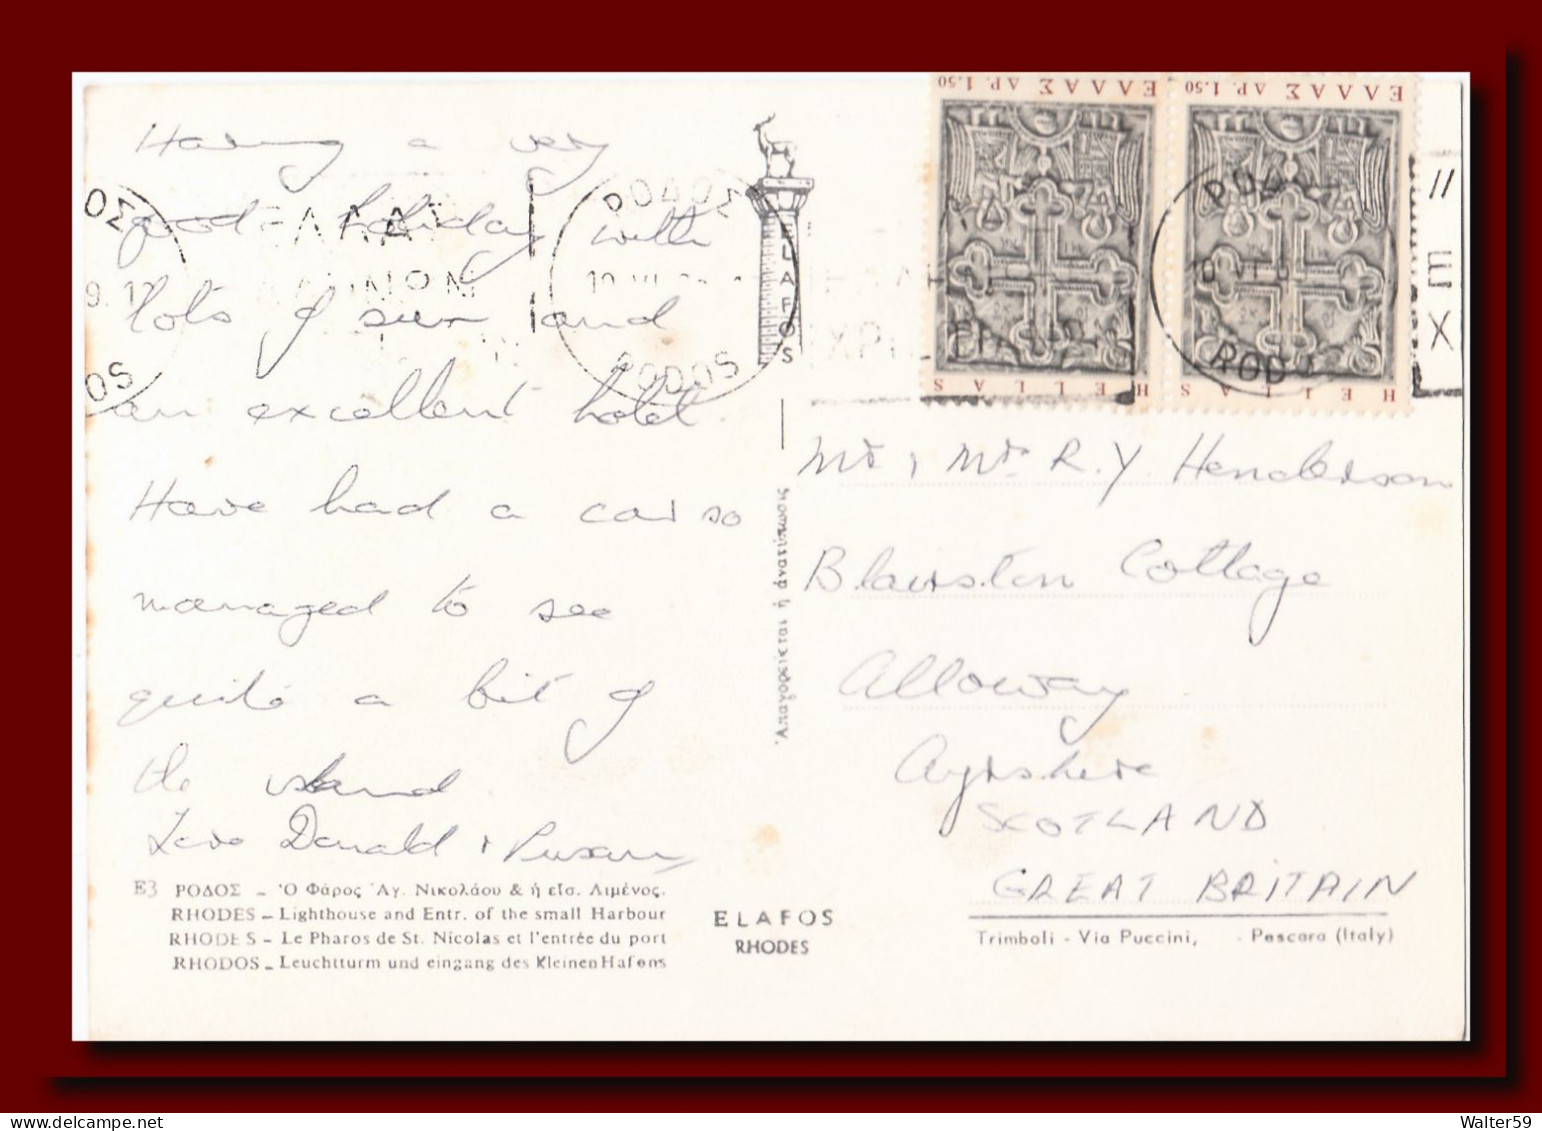 Having a very
good holiday with
lots of sun and
an excellent hotel.
Have had a car so
managed to see
quite a bit of
the island
Love Donald + Susan
E3 ΡΟΔΟΣ - Ὁ Φάρος Ἁγ. Νικολάου & ἡ εἴσ. Λιμένος.
RHODES - Lighthouse and Entr. of the small Harbour
RHODES - Le Pharos de St. Nicolas et l'entrée du port
RHODOS - Leuchtturm und eingang des Kleinen Hafens
ELAFOS
ΡΟΔΟΣ
RODOS
ELAFOS
RHODES
Ἀπαγορεύεται ἡ ἀνατύπωσις
ΕΛΛΑΣ ΔΡ. 1.50
HELLAS
ΕΛΛΑΣ ΔΡ. 1.50
HELLAS
ΡΟΔΟΣ
RODOS
Mr, Mrs R. Y. Henderson
Blairston Cottage
Alloway
Ayrshire
SCOTLAND
GREAT BRITAIN
Trimboli - Via Puccini, - Pescara (Italy)
Walter59